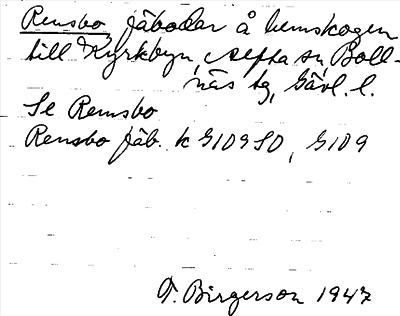 Rensbo, fäbodar å hemskogen
till Kyrkbyn, Alfta sn, Boll-
näs tg, Gävl. l.
Se Remsbo
Rensbo fäb. k G109 SO, G109
T. Birgerson 1947